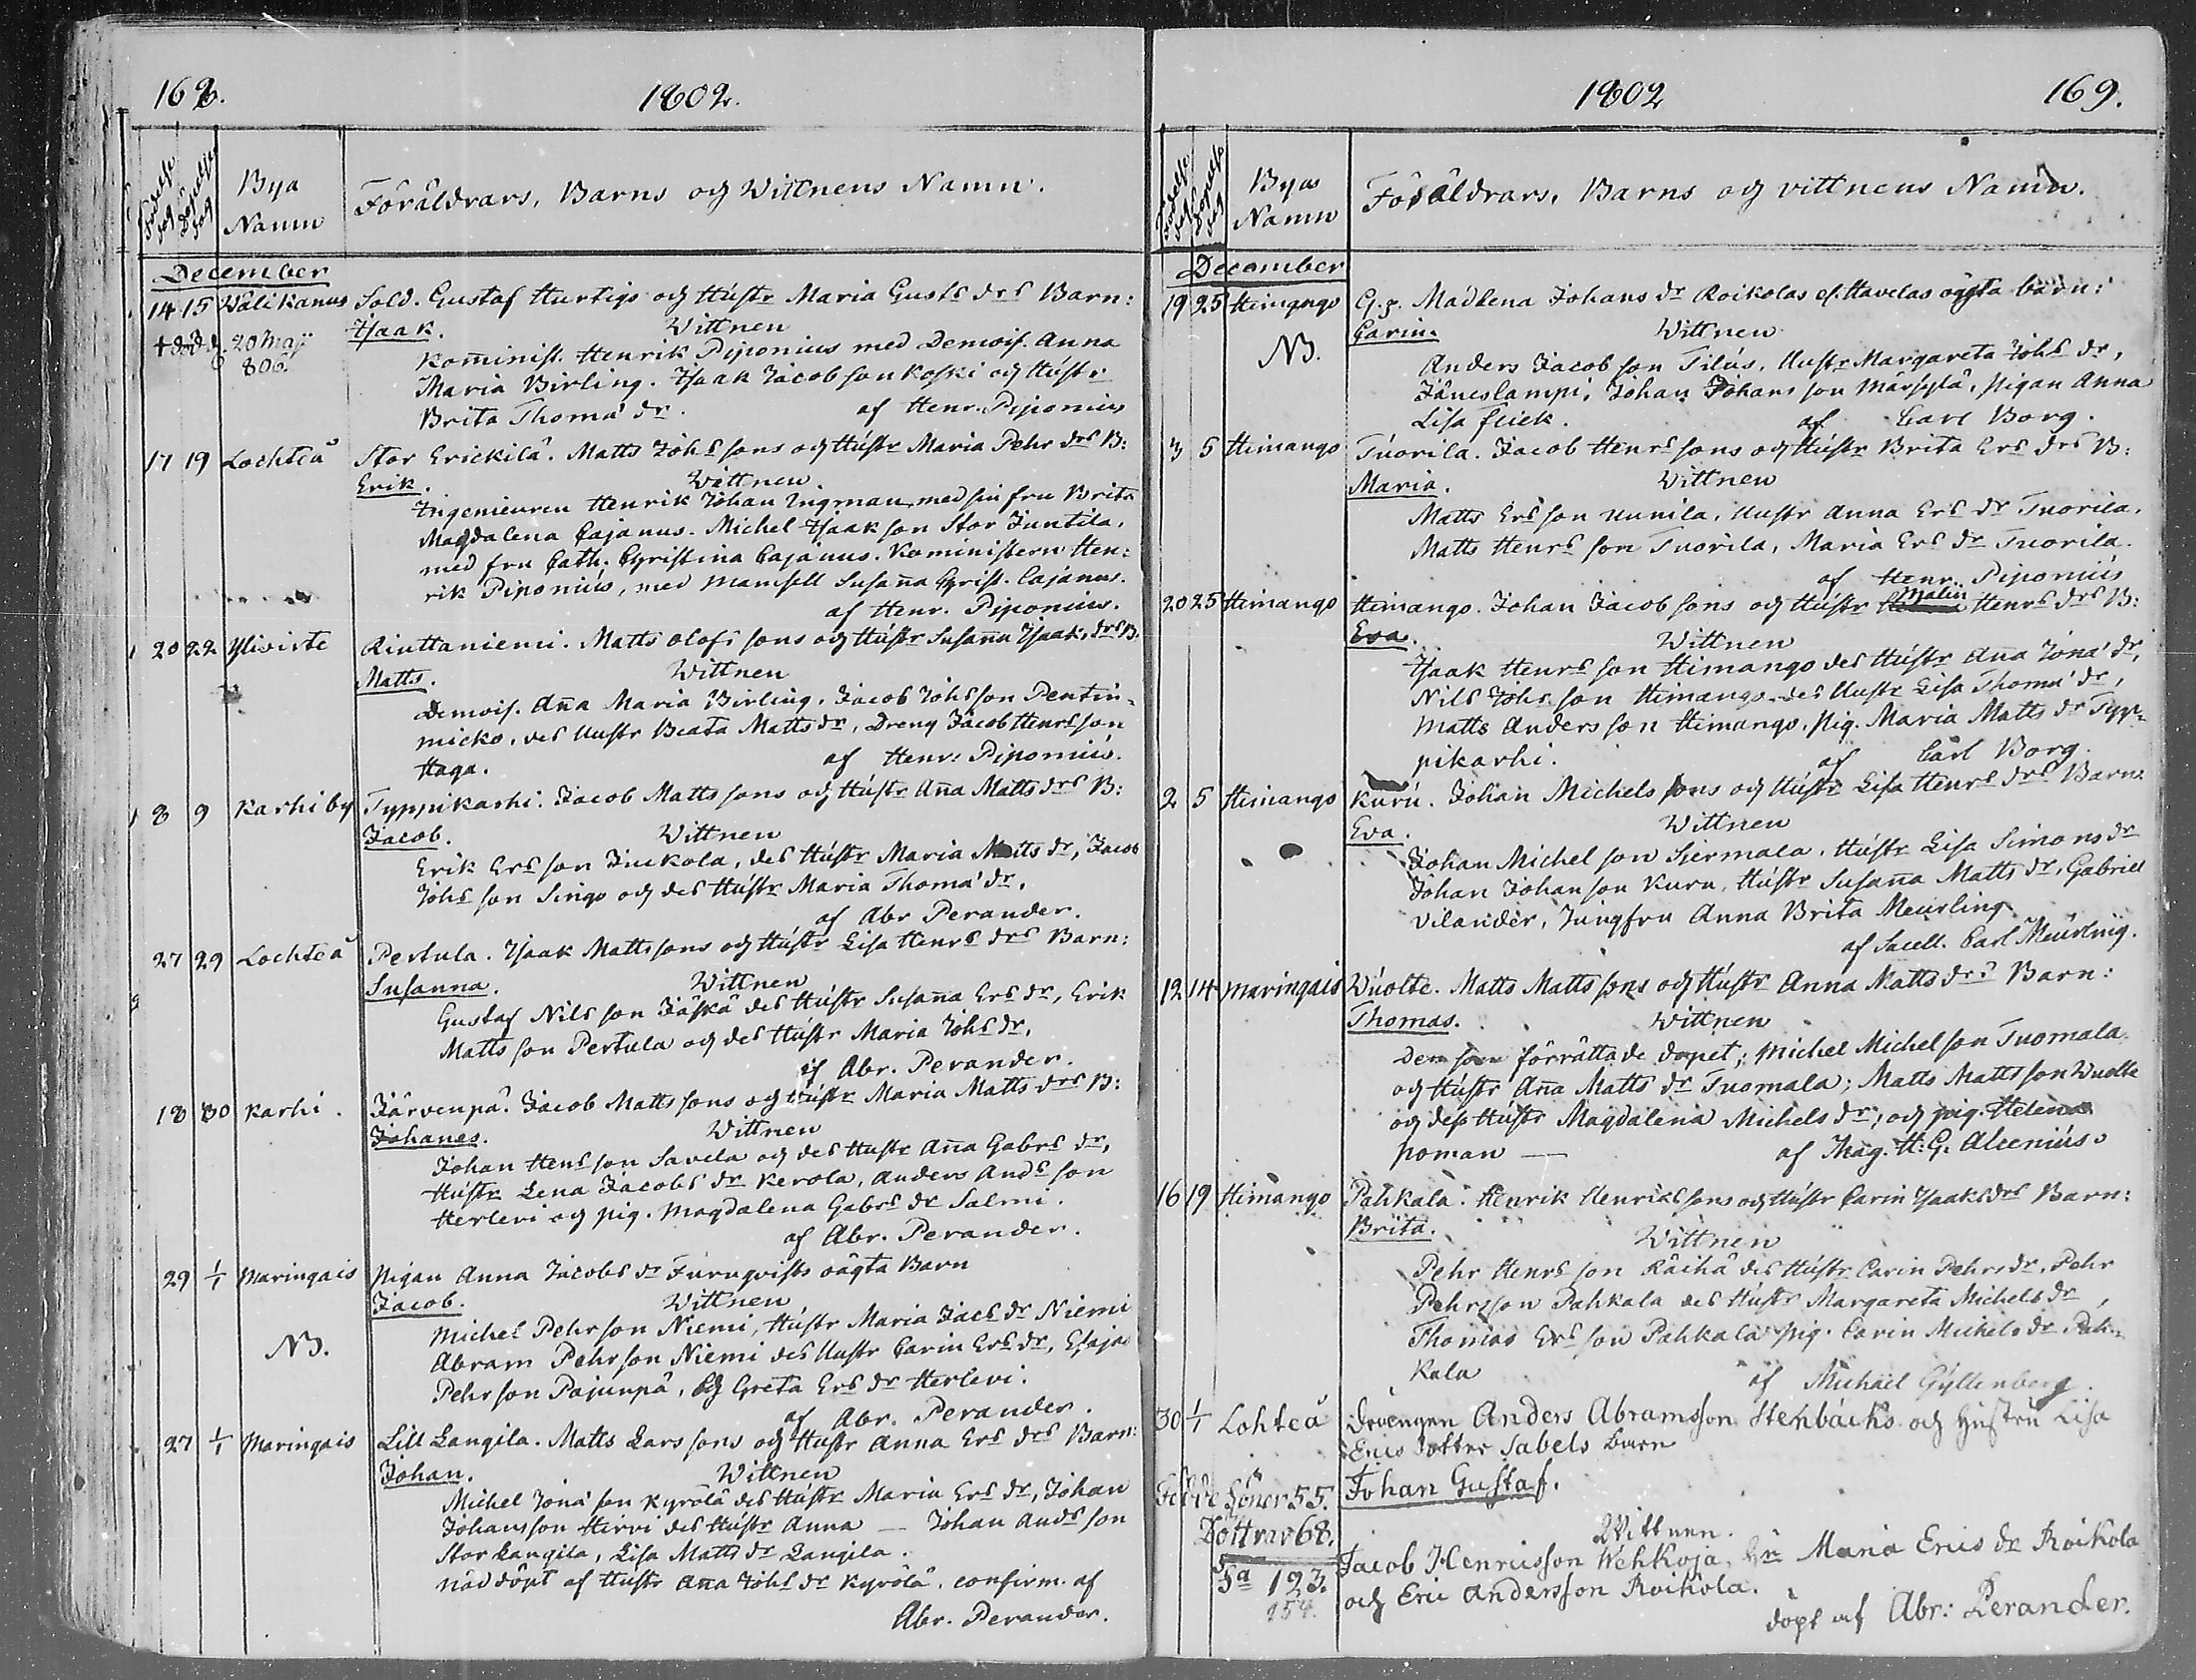 168.
1802.
Födelse dag
Döpelse dag
Bya Namn
Föräldrars, Barns och Wittnens Namn.
December
14 15 Wälikanus Sold. Gustaf Hurtigs och Hustr Maria Gusts drs Barn:
Isaak. Wittnen
† död d. 20 Maji Kominist. Henrik Piponius med Demois. Anna
806 Maria Birling. Isaak Jacobson Koski och Hustr
Brita Thoma dr. af Henr. Piponius
17 19 Lochteå Stor Erickilä. Matts Johs sons och Hustr Maria Pehr drs B:
Erik. Wittnen.
Ingenieuren Henrik Johan Ingman med sin fru Brita
Magdalena Cajanus. Michel Isaakson Stor Juntila,
med fru Cath. Christina Cajanus. Kaministern Hen:
rik Piponius, med Mamsell Susaña Christ. Cajanus.
af Henr. Piponius.
20 22 Ylivirte Riuttaniemi. Matts Olofs sons och Hustr Susaña Isaaks drs B.
Matts. Wittnen
Demois. Aña Maria Birling. Jacob Johsson Pentin-
micko, des Hustr Beata Matts dr, Dreng Jacob Henrsson
Haga. af Henr: Piponius.
8 9 Karhi by Typpikarhi. Jacob Matts sons och Hustr Aña Matts drs B:
Jacob. Wittnen
Erik Ers son Juckola, des Hustr Maria Matts dr, Jacob
Johs son Singo och des Hustr Maria Thoma dr.
af Abr Perander.
27 29 Lochteå Pertula. Isaak Mattsons och Hustr Lisa Henrs drs Barn:
Susanna. Wittnen
Gustaf Nils son Jäskä des Hustr Susaña Ers dr, Erik
Matts son Pertula och des Hustr Maria Johs dr.
af Abr. Perander.
18 30 Karhi. Järvenpä. Jacob Matts sons och Hustr Maria Matts drs B:
Johanes. Wittnen
Johan Hens son Savela och des Hustr Aña Gabrs dr,
Hustr Lena Jacobs dr Kerola, Anders Ands son
Herlevi och pig. Magdalena Gabrs dr Salmi.
af Abr. Perander.
29 1/1 Maringais Pigan Anna Jacobs dr Furuqvists oägta Barn
Jacob. Wittnen
Michel Pehrson Niemi, Hustr Maria Jacs dr Niemi
NB. Abram Pehrson Niemi des Hustr Carin Ers dr, Esajas
Pehrson Pajunpä, och Greta Ers dr Herlevi.
af Abr. Perander.
27 1/1 Maringais Lill Langila. Matts Lars sons och Hustr Anna Ers drs Barn:
Johan. Wittnen
Michel Jona son Kyrölä des Hustr Maria Ers dr, Johan
Johansson Hirvi des Hustr Anna — Johan Ands son
Stor Langila, Lisa Matts dr Langila.
nöddöpt af Hustr Aña Johs dr Kyrölä. confirm. af
Abr. Perander.
1802
169.
Födelse dag
Döpelse dag
Byas Namn
Föräldrars, Barns och vittnens Namn.
December
19 25 Himango Madlena Johans dr Roikolas oägta barn:
Carin. Wittnen
NB. Anders Jacob son Tilus, Hustr Margareta Johs dr,
Jäneslampi, Johan Johans son Märsylä, pigan Anna
Lisa Flick. af Carl Borg.
3 5 Himango Tuorila. Jacob Henrs sons och Hustr Brita Ers drs B:
Maria. Wittnen
Matts Ers son Uunila, Hustr Anna Ers dr Tuorila.
Matts Henrs son Tuorila, Maria Ers dr Tuorila.
af Henr. Piponius
20 25 Himango Himango. Johan Jacob sons och Hustr Malin Henrs drs B:
Eva. Wittnen
Isaak Henrs son Himango des Hustr Aña Jona dr,
Nils Johs son Himango des Hustr Lisa Thoma dr,
Matts Anders son Himango, pig. Maria Matts dr Typ-
pikarhi. af Carl Borg.
2 5 Himango Kuru. Johan Michels sons och Hustr Lisa Henrs drs Barn
Eva. Wittnen
Johan Michel son Siermala. Hustr Lisa Simons dr
Johan Johanson Kuru, Hustr Susaña Matts dr, Gabriel
Vilander, Jungfru Anna Brita Meurling
af Sacell. Carl Meurling.
12 14 Maringais Wuolte. Matts Matts sons och Hustr Anna Matts drs Barn:
Thomas. Wittnen
Den som förrättade dopet; Michel Michelson Tuomala
och Hustr Aña Matts dr Tuomala; Matts Mattson Wuolte
och dess Hustr Magdalena Michels dr, och pig. Helena
Poman — af Mag. H. G. Alcenius.
16 19 Himango Pahkala. Henrik Henriks sons och Hustr Carin Isaaks drs Barn:
Brita. Wittnen
Pehr Henrs son Räihä des Hustr Carin Pehrs dr, Pehr
Pehrsson Pahkala des Hustr Margareta Michels dr,
Thomas Ers son Pahkala pig. Carin Michels dr Pah-
kala af Michael Gyllenberg.
30 1/1 Lohteå Drengen Anders Abramsson Stenbacks och Hustru Lisa
Erics dotter Sabels barn
Johan Gustaf.
Födde Söner 55.
Döttrar 68.
Sa 123.
254.
Wittnen.
Jacob Henricsson Wehkoja, Hu Maria Erics dr Roikola
och Eric Andersson Roikola.
döpt af Abr: Perander.